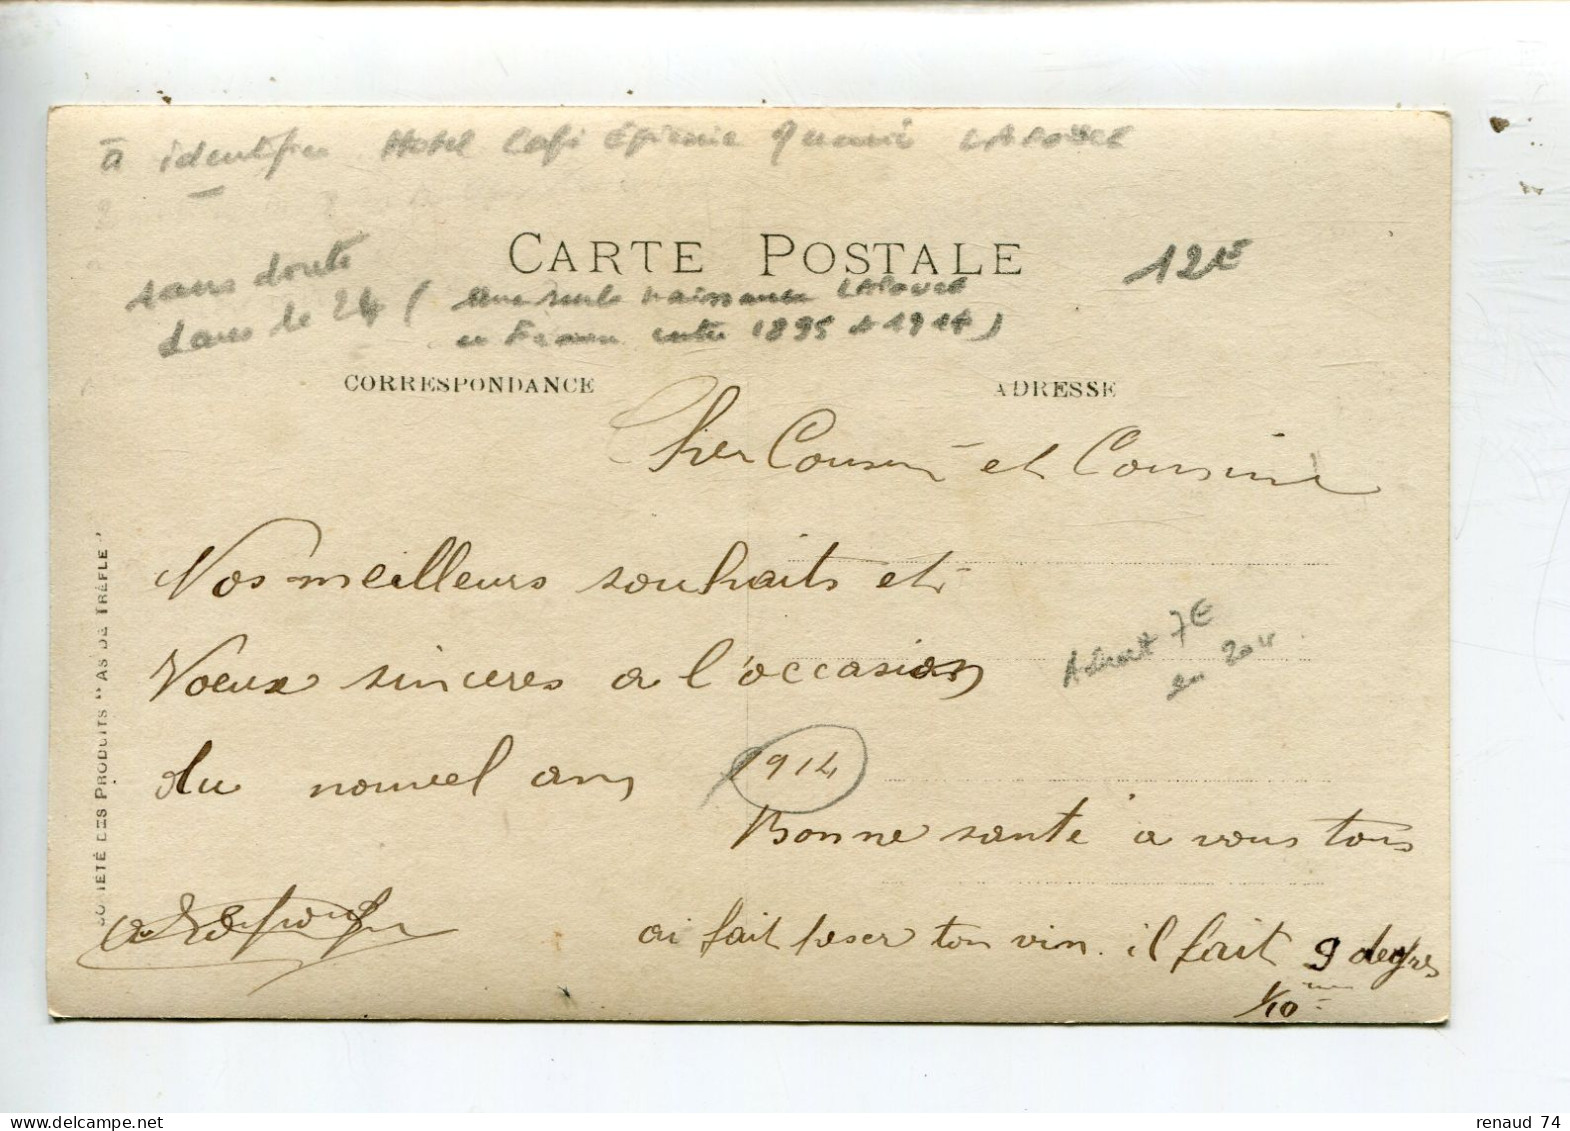 à identifier Hotel Café Épicerie
CARTE POSTALE
12€
sans doute
dans le 24 ( une seule naissance
en France entre 1895 et 1914)
CORRESPONDANCE
ADRESSE
Cher Cousin et Cousine
Nos meilleurs souhaits et
Voeux sinceres a l'occasion
du nouvel an 1914
Bonne santé a vous tous
ai fait peser ton vin. il fait 9 degres
1/10
Achat 7€
en
SOCIÉTÉ DES PRODUITS "AS DE TRÈFLE"
www.delcampe.net
renaud 74